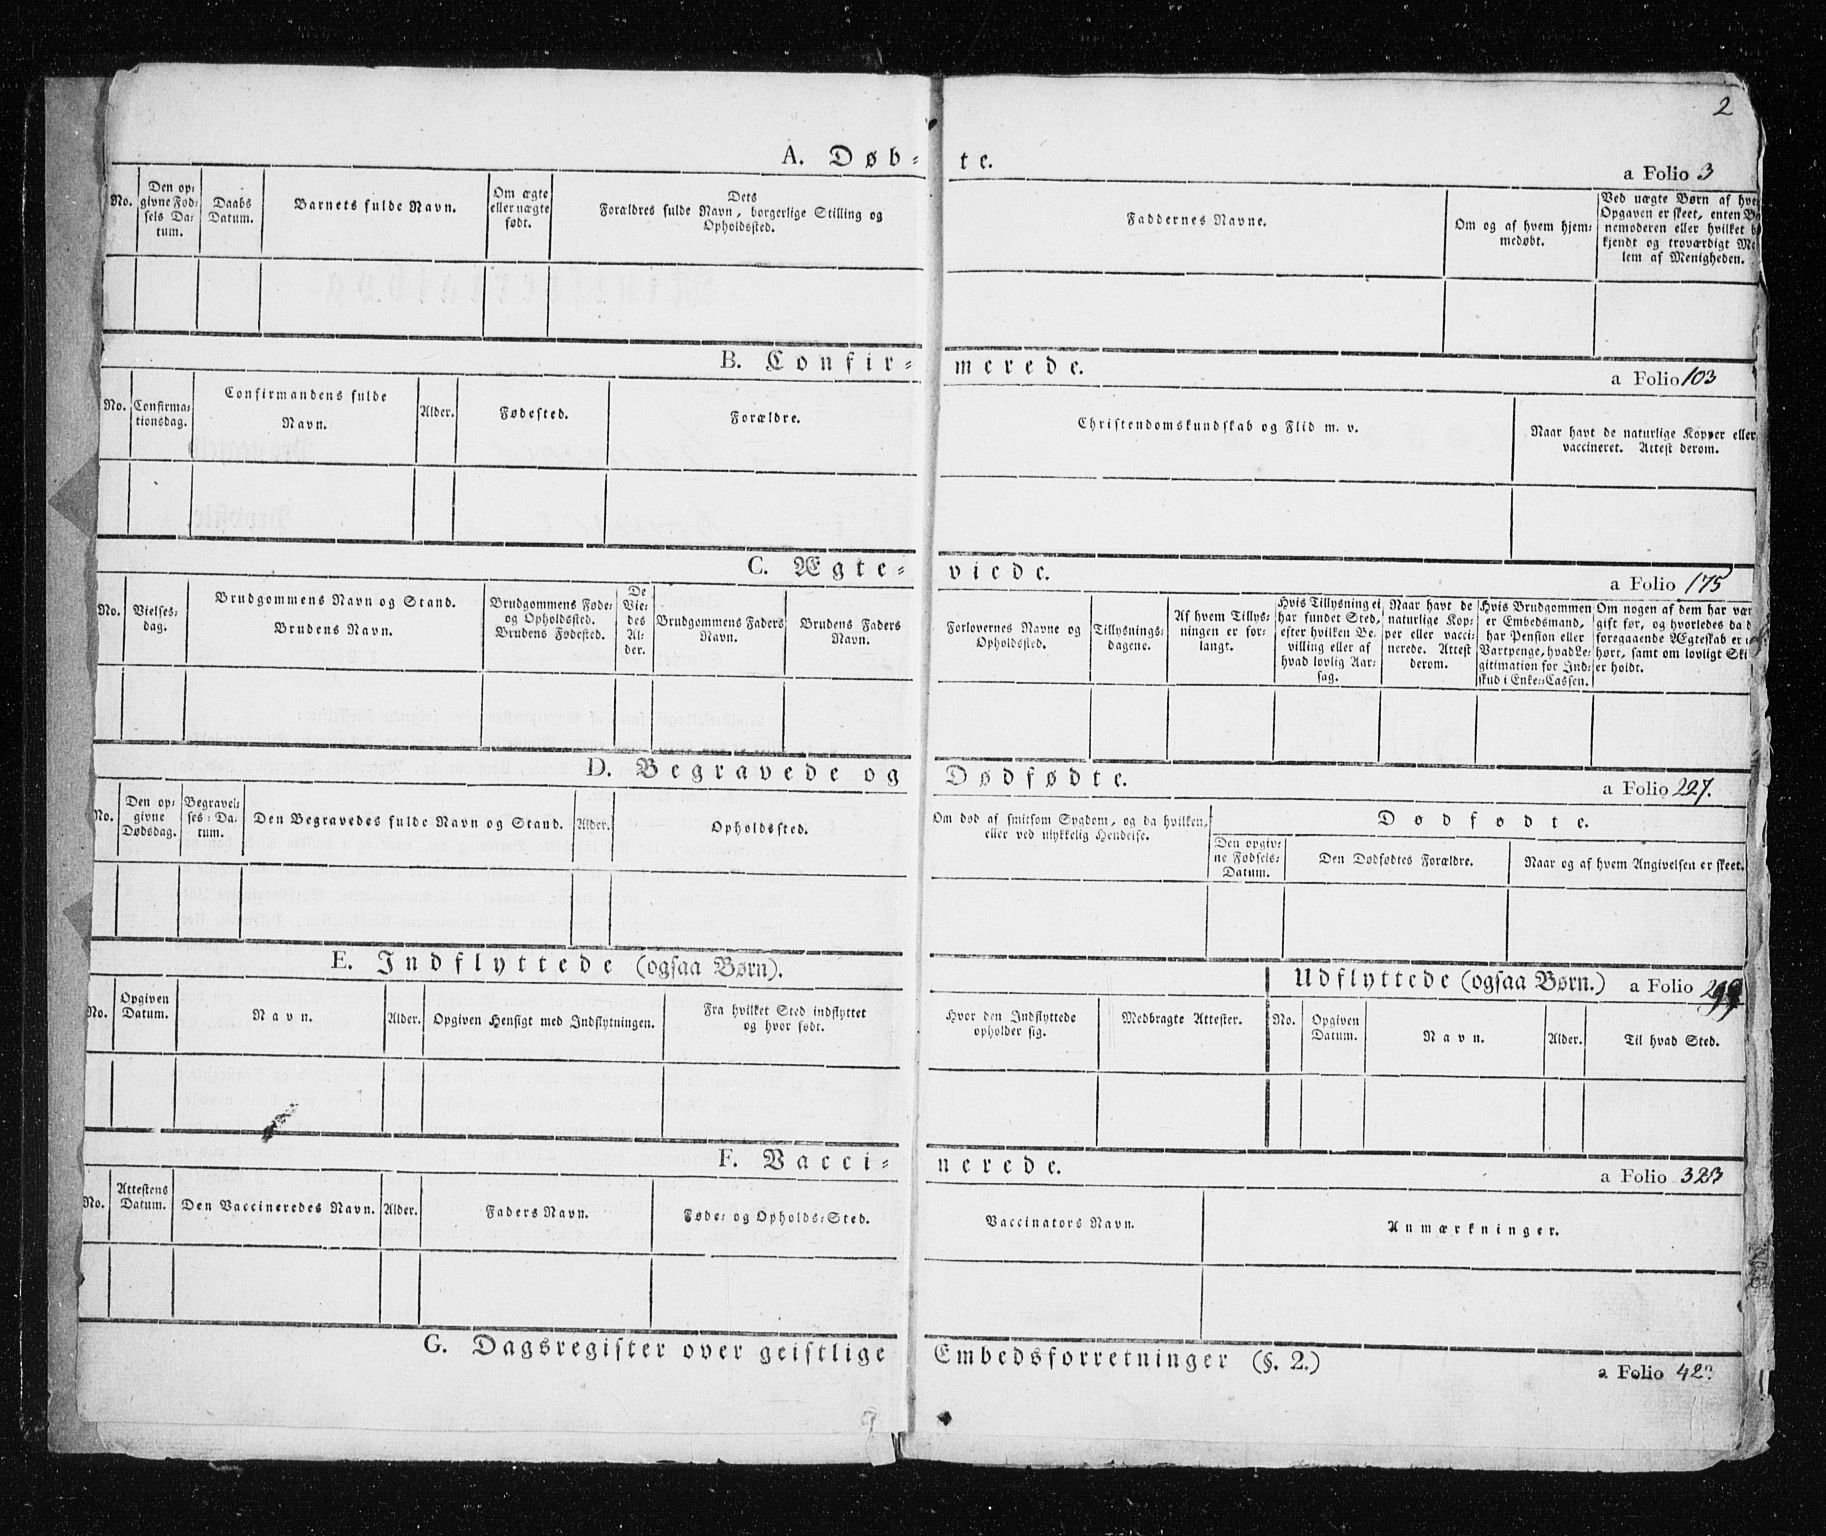 2
A. Døb- te.
a Folio 3
No.
Den op-
givne Fød-
sels Da-
tum.
Daabs
Datum.
Barnets fulde Navn.
Om ægte
eller uægte
født.
Dets
Forældres fulde Navn, borgerlige Stilling og
Opholdssted.
Faddernes Navne.
Om og af hvem hjem-
medøbt.
Ved uægte Børn af hve
Opgaven er skeet, enten B
nemoderen eller hvilket b
kjendt og troværdigt Me
lem af Menigheden.
B. Confir- merede.
a Folio 103
No.
Confirma-
tionsdag.
Confirmandens fulde
Navn.
Alder.
Fødested.
Forældre.
Christendomskundskab og Flid m. v.
Naar havt de naturlige Kopper eller
vaccineret. Attest derom.
C. Ægte- viede.
a Folio 175
No.
Vielses-
dag.
Brudgommens Navn og Stand.
Brudens Navn.
Brudgommens Føde-
og Opholdssted.
Brudens Fødested.
De
Vie-
des
Al-
der.
Brudgommens Faders
Navn.
Brudens Faders
Navn.
Forlovernes Navne og
Opholdssted.
Tillysnings-
dagene.
Af hvem Tillys-
ningen er for-
langt.
Hvis Tillysning ei
har fundet Sted,
efter hvilken Be-
villing eller af
hvad lovlig Aar-
sag.
Naar havt de
naturlige Kop-
per eller vacci-
nerede. Attest
derom.
Hvis Brudgommen
er Embedsmand,
har Pension eller
Vartpenge, hvad Le-
gitimation for Ind-
skud i Enke-Cassen.
Om nogen af dem har vær
gift før, og hvorledes da d
foregaaende Ægteskab er o
hørt, samt om lovligt Ski
er holdt.
D. Begravede og Dødfødte.
a Folio 227.
No.
Den op-
givne
Dødsdag.
Begravel-
ses-Da-
tum.
Den Begravedes fulde Navn og Stand.
Alder.
Opholdssted.
Om død af smitsom Sygdom, og da hvilken,
eller ved ulykkelig Hendelse.
Dødfødte.
Den opgiv-
ne Fødsels-
Datum.
Den Dødfødtes Forældre.
Naar og af hvem Angivelsen er skeet.
E. Indflyttede (ogsaa Børn).
Udflyttede (ogsaa Børn.)
a Folio
No.
Opgiven
Datum.
Navn.
Alder.
Opgiven Hensigt med Indflytningen.
Fra hvilket Sted indflyttet
og hvor født.
Hvor den Indflyttede
opholder sig.
Medbragte Attester.
No.
Opgiven
Datum.
Navn.
Alder.
Til hvad Sted.
F. Vacci- nerede.
a Folio 323
No.
Attestens
Datum.
Den Vaccineredes Navn.
Alder.
Faders Navn.
Føde- og Opholds-Sted.
Vaccinators Navn.
Anmærkninger.
G. Dagsregister over geistlige Embedsforretninger (§. 2.)
a Folio